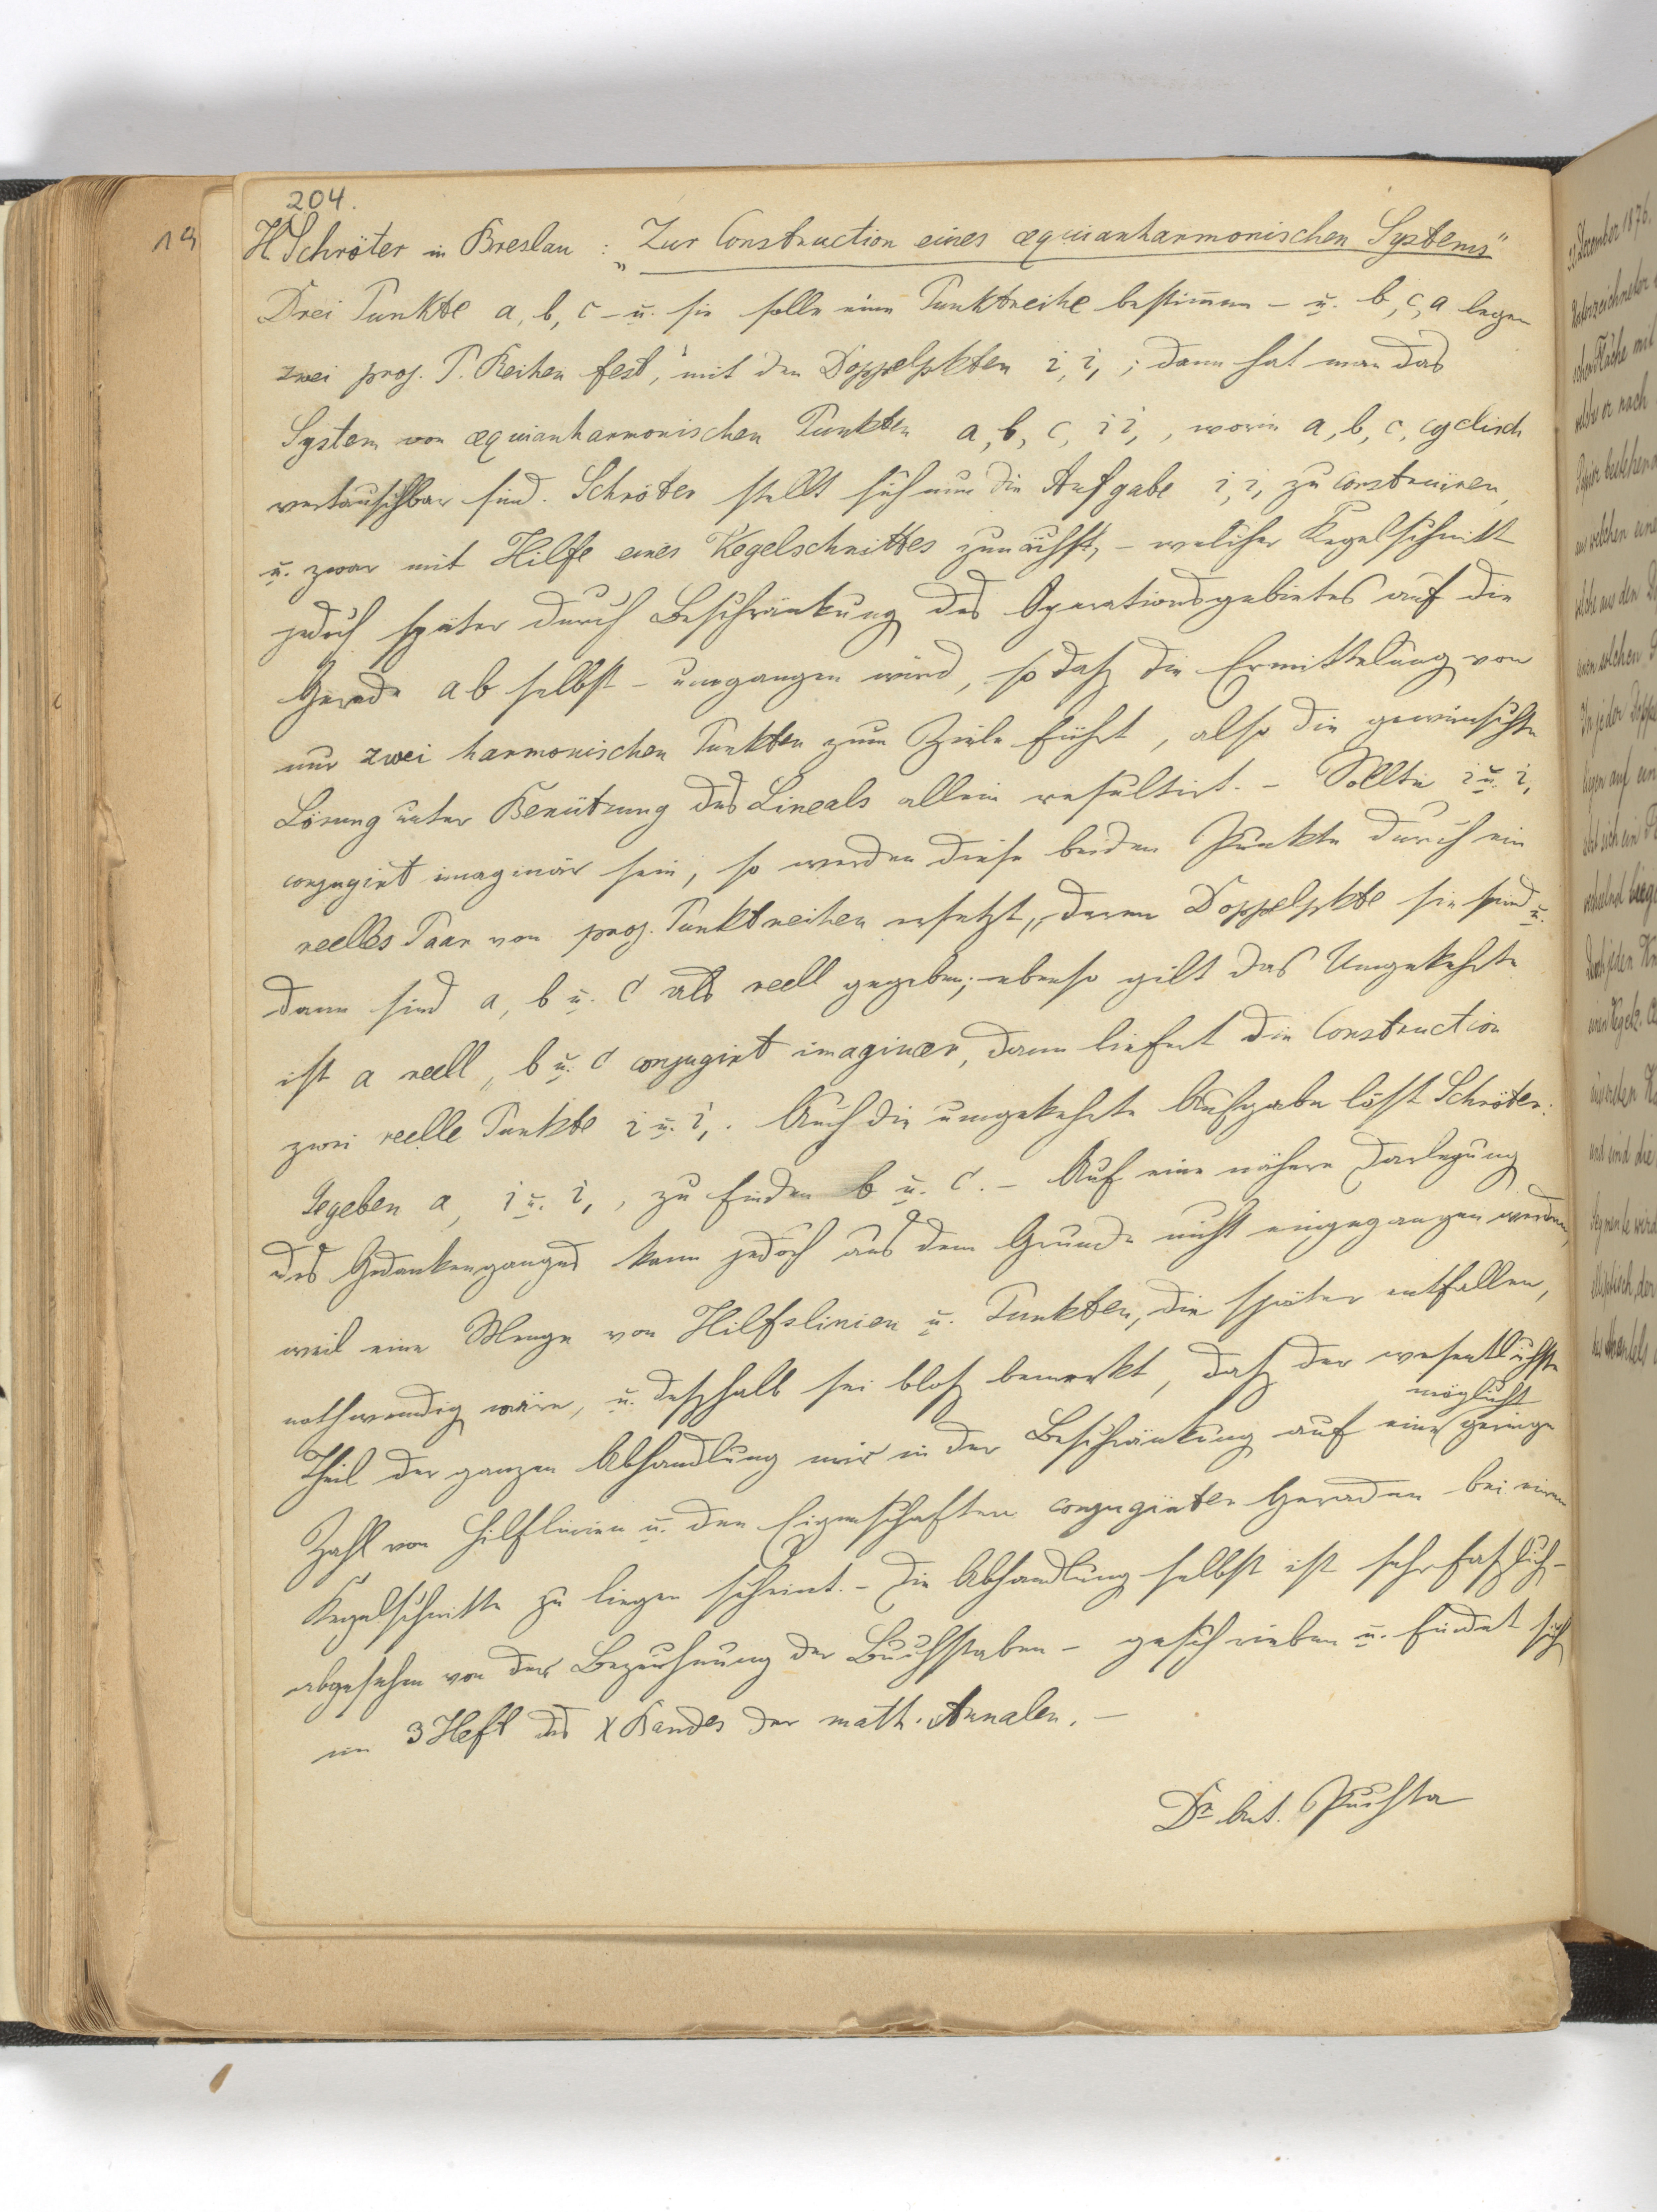 204.
19
H Schröter in Breslau : „Zur Construction eines æquianharmonischen Systems"
Drei Punkte a, b, c – u. sie solln eine Punktreihe bestimmen – u. b, c, a legen
zwei proj. P. Reihen fest, mit den Doppelpkten i, i, ; dann hat man das
System von æquianharmonischen Punkten a, b, c, i i, , worin a, b, c, cyclisch
vertauschbar sind. Schröter stellt sich nun die Aufgabe i, i, zu construiren,
u. zwar mit Hilfe eines Kegelschnittes zunächst, – welcher Kegelschnitt
jedoch später durch Beschränkung des Operationsgebietes auf die
Gerade ab selbst – umgangen wird, so daß die Ermittelung von
nur zwei harmonischen Punkten zum Ziele führt, also die gewünschte
Lösung unter Benützung des Lineals allein resultirt. – Sollte i u. i,
conjugirt imaginär sein, so werden diese beiden Punkte durch ein
reelles Paar von proj. Punktreihen ersetzt, deren Doppelpkte sie sind u.
dann sind a, b u. c als reell gegeben; ebenso gilt das Umgekehrte
ist a reell, b u. c conjugirt imaginær, dann liefert die Construction
zwei reelle Punkte i u. i, . Auch die umgekehrte Aufgabe löst Schröter:
Gegeben a, i u. i, , zu finden b u. c. – Auf eine nähere Darlegung
des Gedankenganges kann jedoch aus dem Grunde nicht eingegangen werden,
weil eine Menge von Hilfslinien u. Punkten, die später entfallen,
nothwendig wäre, u. deßhalb sei bloß bemerkt, daß der wesentlichste
Theil der ganzen Abhandlung mir in der Beschränkung auf eine möglichst geringe
Zahl von Hilflinien u. den Eigenschaften conjugirter Geraden bei einem
Kegelschnitte zu liegen scheint. – Die Abhandlung selbst ist sehr faßlich –
abgesehen von der Bezeichnung der Buchstaben – geschrieben u. findet sich
im 3 Heft des X Bandes der math. Annalen. –
Dr Ant. Puchta